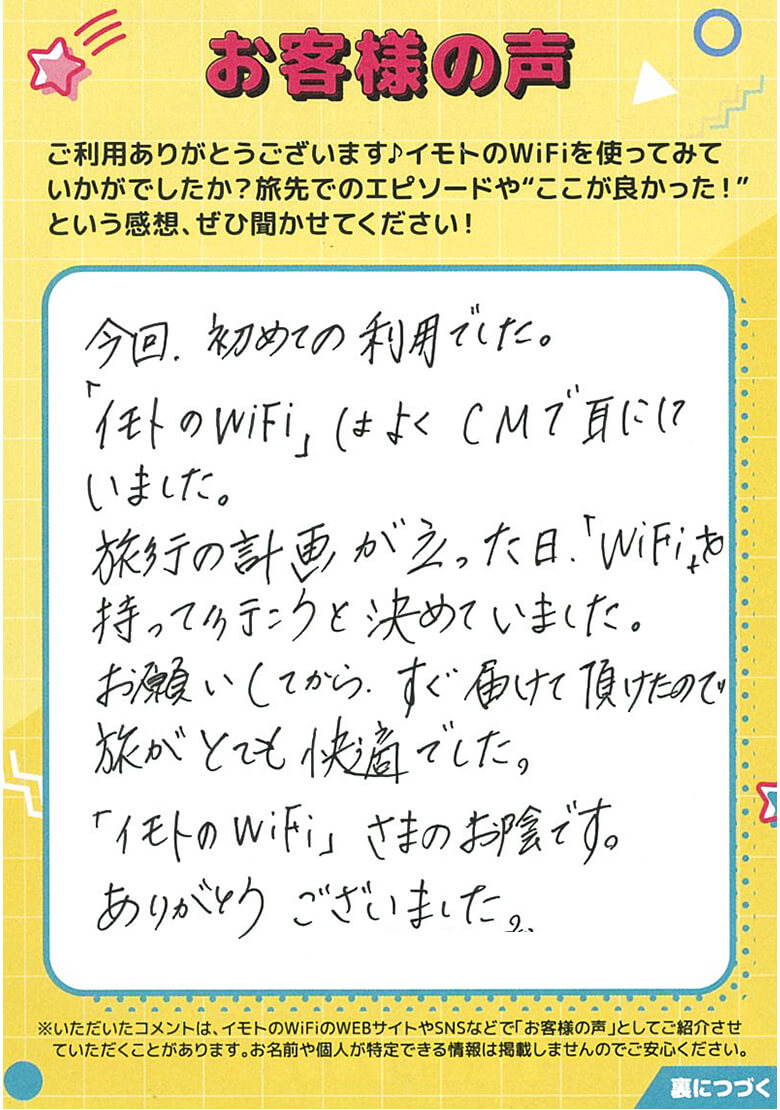 お客様の声
ご利用ありがとうございます♪イモトのWiFiを使ってみて
いかがでしたか？旅先でのエピソードや“ここが良かった！”
という感想、ぜひ聞かせてください！
今回、初めての利用でした。
「イモトのWiFi」はよくCMで耳にして
いました。
旅行の計画が立った日、「WiFi」を
持って行こうと決めていました。
お願いしてから、すぐ届けて頂けたので
旅がとても快適でした。
「イモトのWiFi」さまのお陰です。
ありがとうございました。
※いただいたコメントは、イモトのWiFiのWEBサイトやSNSなどで「お客様の声」としてご紹介させ
ていただくことがあります。お名前や個人が特定できる情報は掲載しませんのでご安心ください。
裏につづく